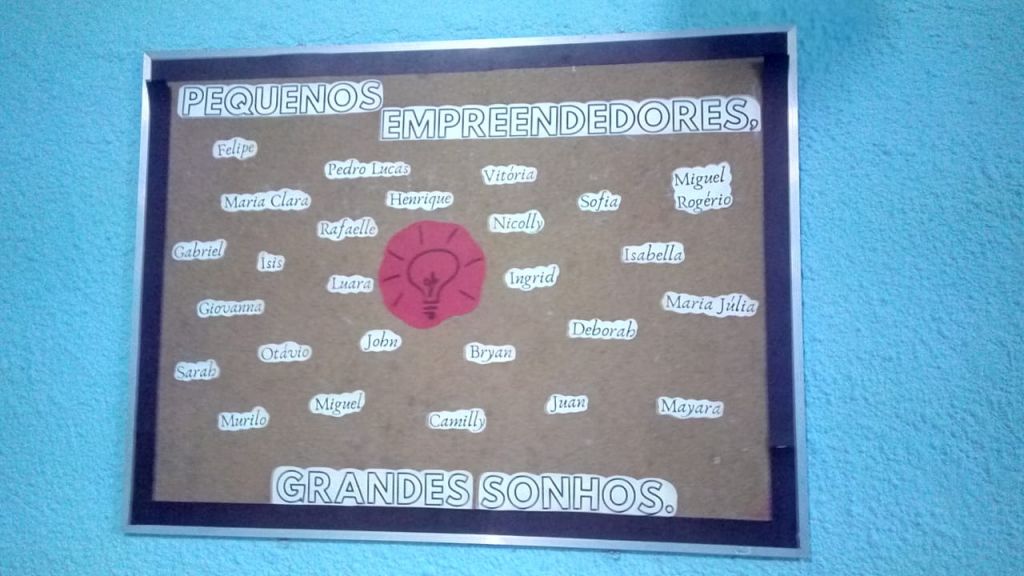 PEQUENOS
EMPREENDEDORES,
Felipe
Pedro Lucas
Vitória
Miguel
Rogério
Maria Clara
Henrique
Sofia
Rafaelle
Nicolly
Gabriel
Ísis
Isabella
Luara
Ingrid
Giovanna
Maria Júlia
Deborah
John
Otávio
Bryan
Sarah
Miguel
Juan
Mayara
Murilo
Camilly
GRANDES SONHOS.